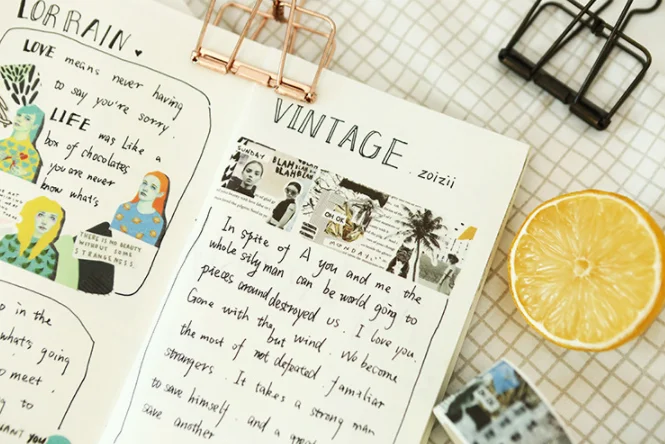 LORRAIN
LOVE means never having
to say you're sorry.
LIFE was like a
box of chocolates
you are never
know what's
THERE IS NO BEAUTY
WITHOUT SOME
STRANGENESS.
in the
what's going
meet
to
WANT YOU
VINTAGE
zoizii
SUNDAY
BLAH BLAH
BLAH BLAH
OH OK
MONDAY
In spite of A you and me the
whole sily man can be world going to
pieces around destroyed us. I love you.
Gone with the but wind. Wo become
the most of not defeated familiar
strangers. It takes a strong man
to save himself, and a great
save another